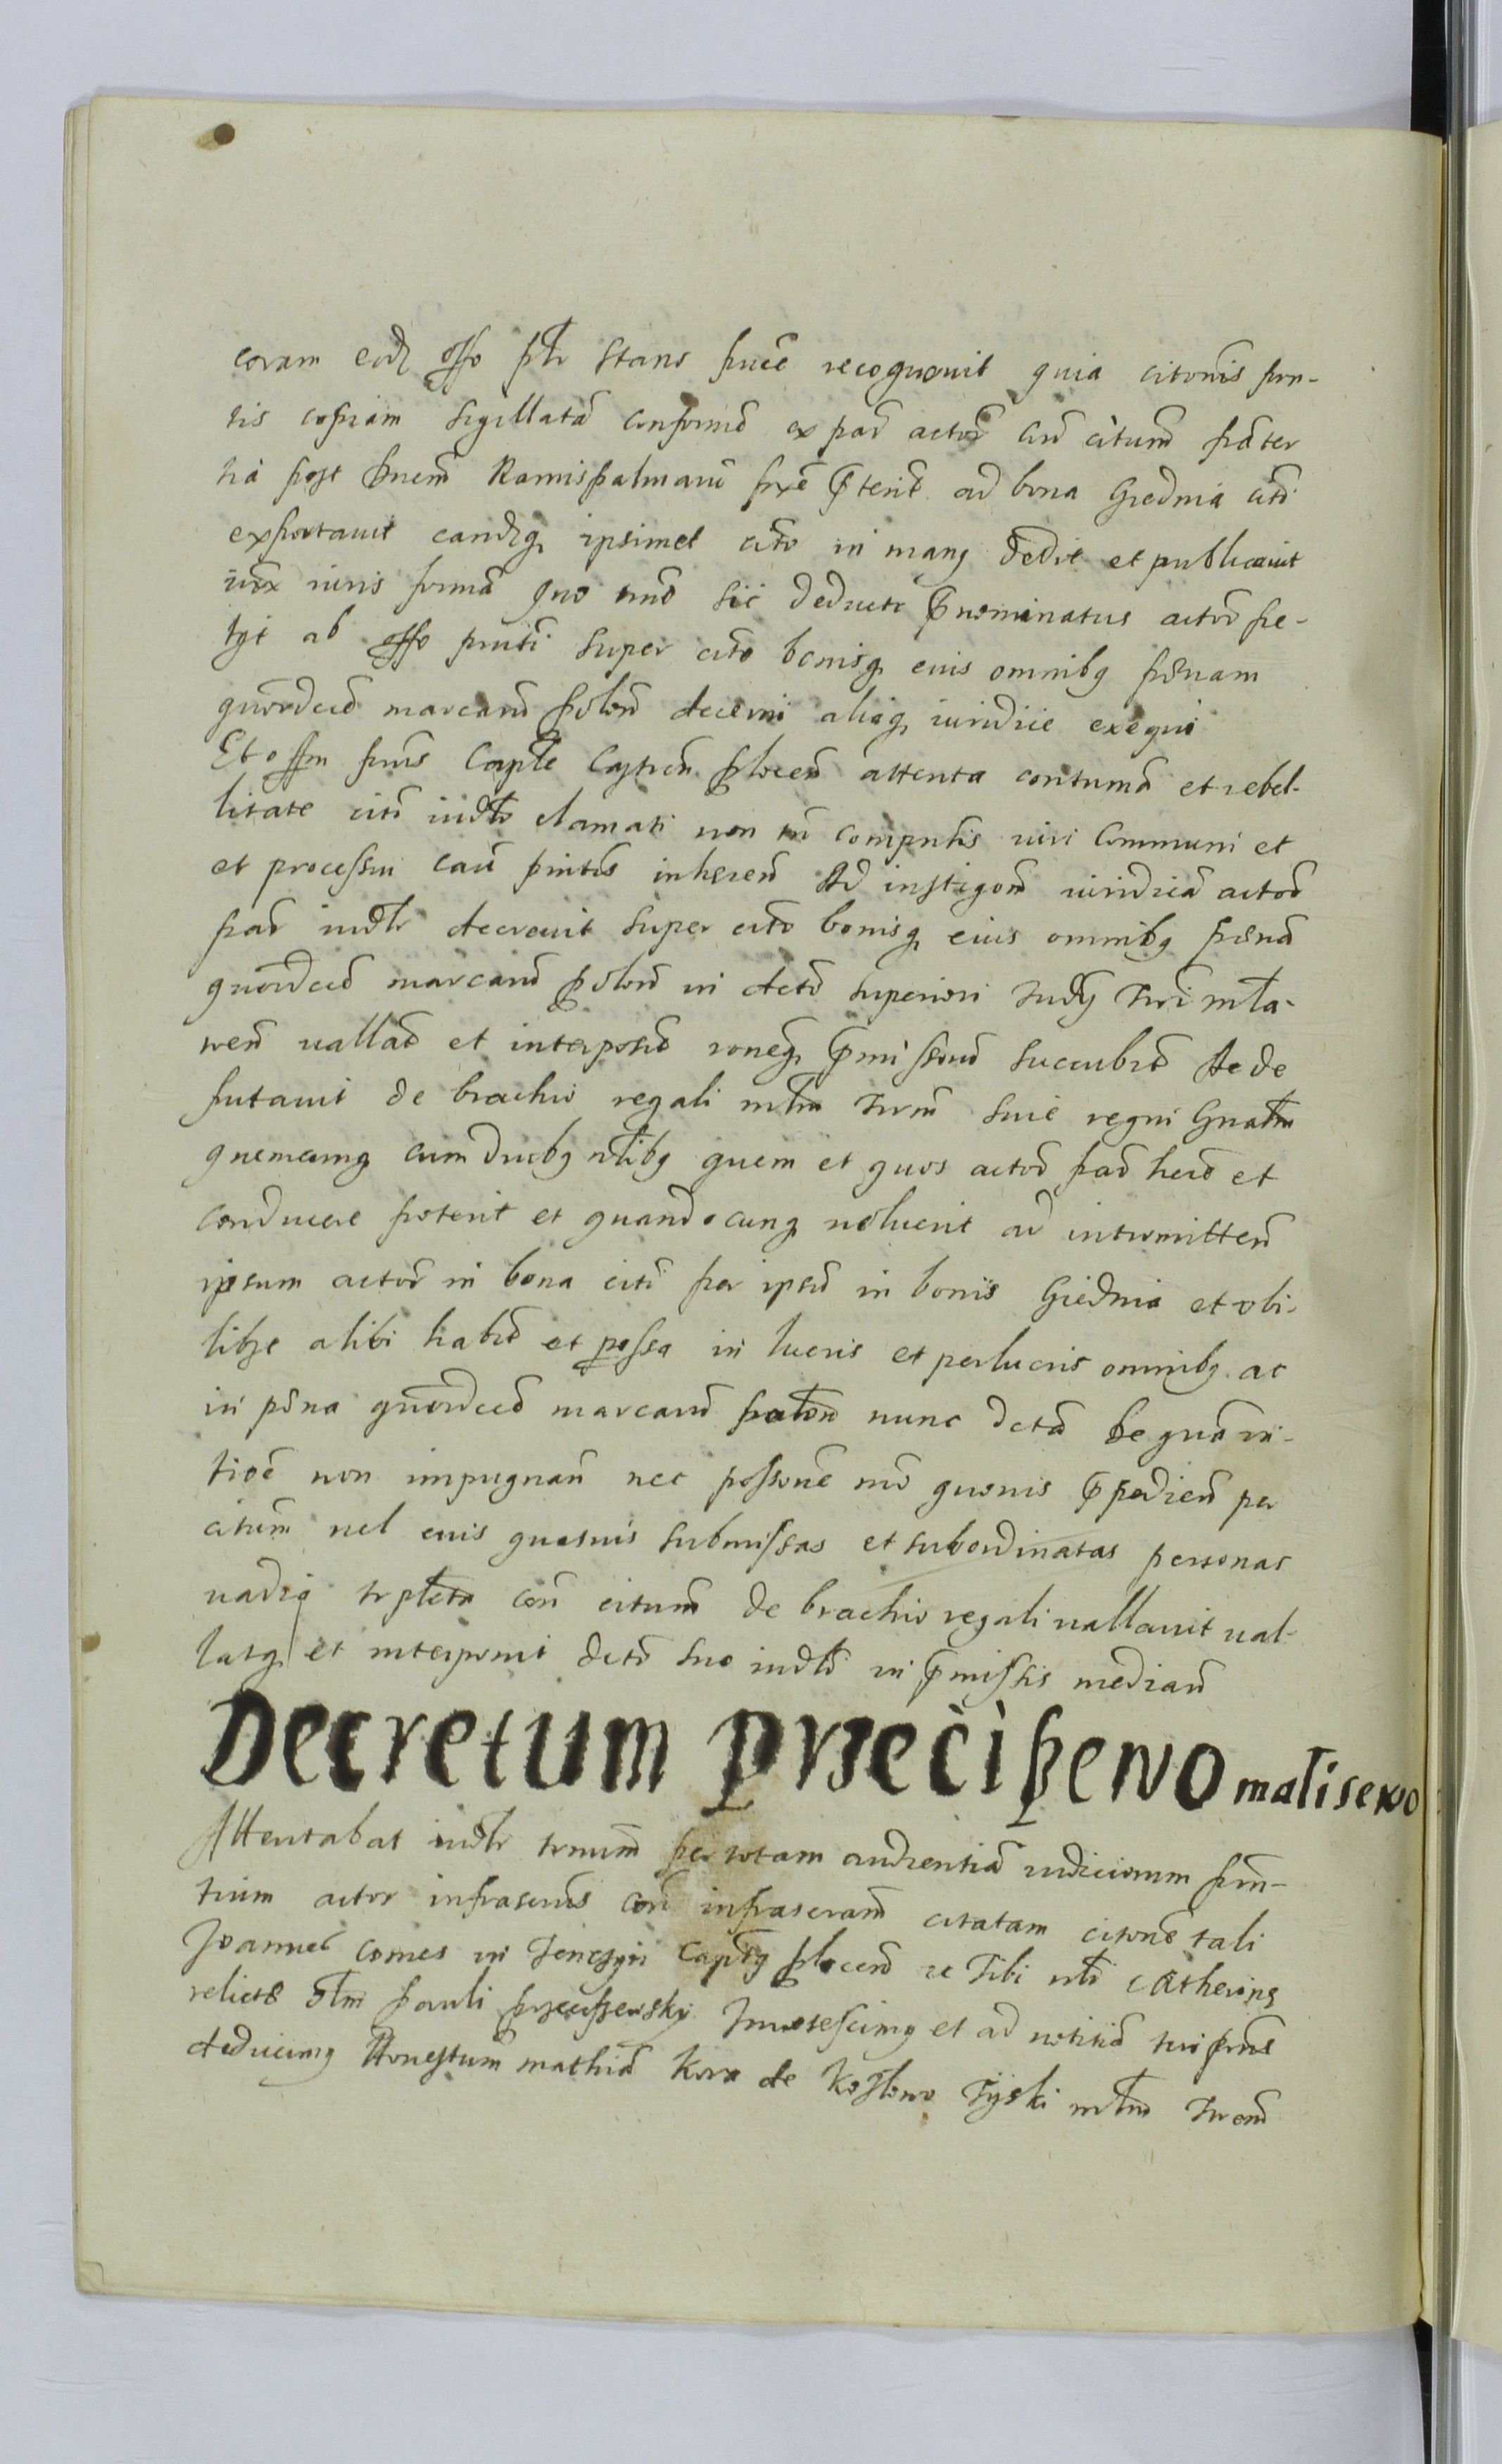 coram eodē offo p̄tr stans p̄ncē recognouit quia citōnis prn̄-
tis copiam sigillatā conformē ex par̄ actor̄ cn̄ citum̄ fr̄a ter
tia post Dnem̄ Ramispalmarū prx̄e p̄terit̄ ad bona Giednia citī
exportauit eandēq ipsimet citō in manq dedit et publicauit
iūx iuris formā quo mō sic deducto p̄nominatus actor̄ pe-
tyt ab offo prn̄ti super citō bonisq eius omnibq pœnam
quor̄decē marcarū polon̄ decerni aliaq iuridice exequi
Et offm prn̄s Capl̄e Castren̄ plocen̄ attenta contumā et rebel-
litate citī iudlr̄ clamati non tn̄ comprn̄tis iuri communi et
et processui caū prn̄tis inheren̄ Ad instigōm iuridicā actor̄
par̄ iudlr̄ decreuit super citō bonisq eius omnibq pœnā
quor̄decē marcarū polon̄ in dctō superiori Iudy Trri mla-
wen̄ vallat̄ et interposit̄ ronēq p̄missorū succubit̄ Ac de
putauit de brachio regali mlm̄ Trrm̄ siue regni Gnalm̄
quemcunq cum duobq nlībq quem et quos actor̄ par̄ herē et
conducere poterit et quandocunq voluerit ad intromitten̄
ipsum actor̄ in bona citī per ipsū in bonis Giednia et vbi-
libȝt alibi habit̄ et possa in lucris et perlucris omnibq ac
in pœna quor̄decē marcarū polon̄ nunc dctā se quā in-
tioē non impugnan̄ nec possonē mō quouis p̄pedien̄ per
citum̄ vel eius quasuis submissas et subordinatas personas
vadiq triplctr̄ con̄ citum̄ de brachio regali vallauit val-
latq et interponit dctō suo iudlī in p̄missis median̄
Decretum przeciszewo maliszewo
Attentabat iudlr̄ trnum̄ per totam audientiā iudiciorum prn̄-
tium actor infrascrus̄ con̄ infrascram̄ citatam citonē tali
Joannes comes in Tenczyn Captq plocen̄ ec Tibi nlī Catherinę
relictę olm̄ Pauli przeciszewsky Innotescimq et ad notitiā tui prn̄s
deducimq Honestum mathiā Kora de Koslowo Tyski mlm̄ Trrem̄